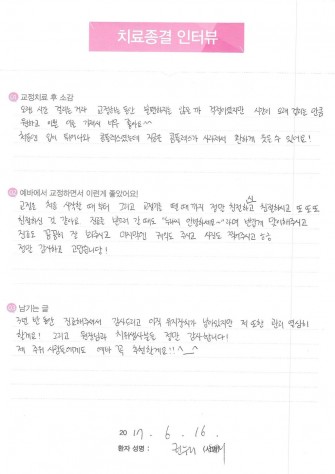 치료종결 인터뷰
01 교정치료 후 소감
오랜 시간 걸리는 거라 교정하는 동안 불편하지는 않을까 걱정이었지만 시간이 오래 걸리는 만큼
원하고 이쁜 이를 가져서 너무 좋아요^^
처음엔 입이 튀어나와 콤플렉스였는데 지금은 콤플렉스가 사라져서 환하게 웃을 수 있어요!
02 예바에서 교정하면서 이런게 좋았어요!
교정을 처음 시작할 때부터 그리고 교정기를 뗄 때까지 정말 친절하고 친절하시고 또 또또
친절하신 것 같아요 진료를 받으러 갈 때도 안녕하세요~ 라며 반갑게 맞이해주시고
진료도 꼼꼼히 잘 봐주시고 마지막엔 주시고 사진도 찍어주시고
정말 감사하고 고맙습니다!
03 남기는 글
3년 반 동안 진료해주셔서 감사드리고 아직 유지장치가 남아있지만 저 또한 관리 열심히
할게요! 그리고 원장님과 치위생사분들 정말 감사합니다!
제 주위 사람들에게도 예바 꼭 추천할게요!! ^_^
2017. 6. 16.
환자 성명 : (서명)